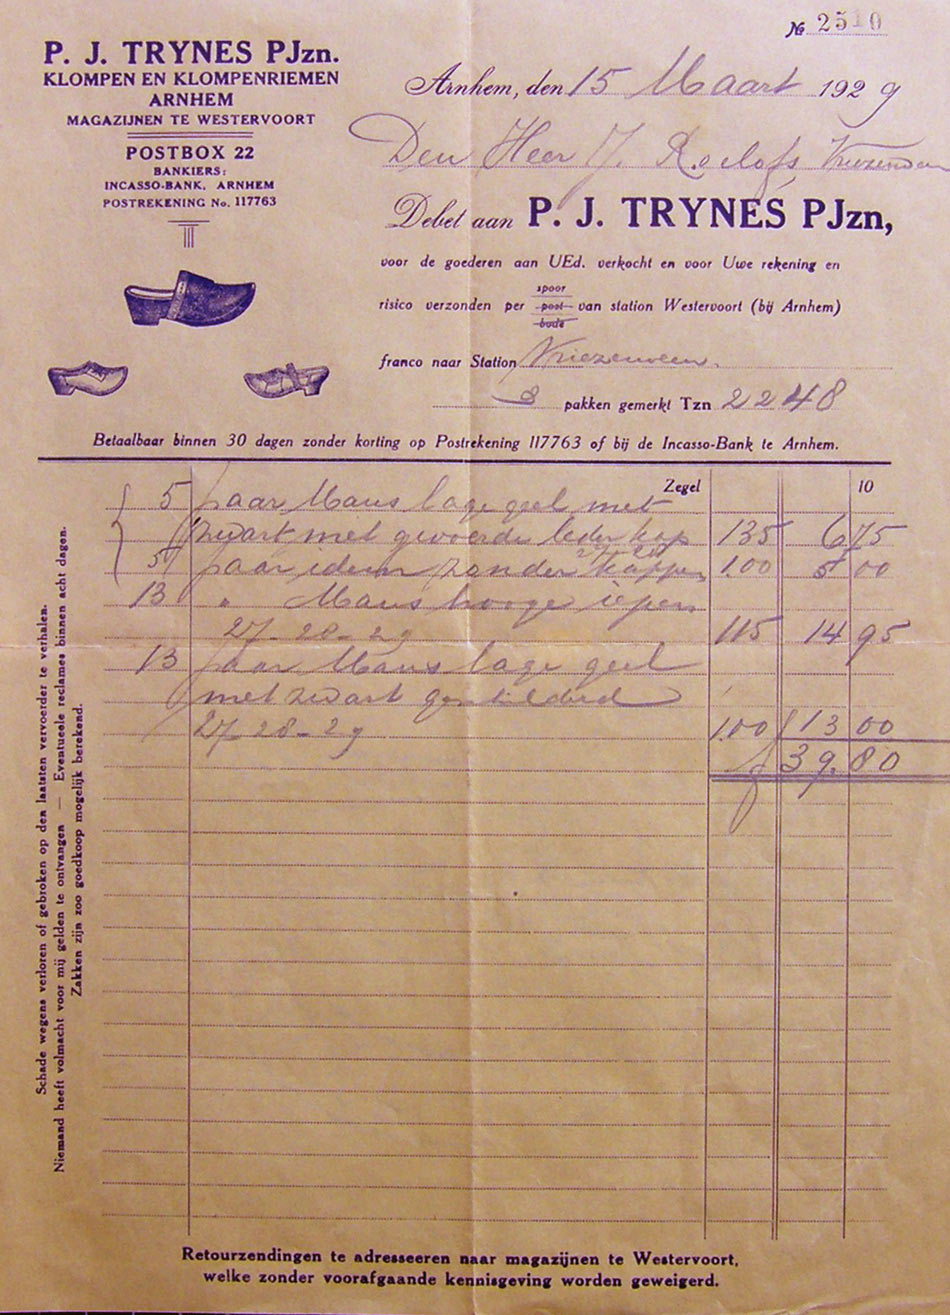 № 2510
P. J. TRYNES PJzn.
KLOMPEN EN KLOMPENRIEMEN
ARNHEM
MAGAZIJNEN TE WESTERVOORT
POSTBOX 22
BANKIERS:
INCASSO-BANK, ARNHEM
POSTREKENING No. 117763
Arnhem, den 15 Maart 1929
Den Heer J. Roelofs Vriezenveen
Debet aan P. J. TRYNES PJzn,
voor de goederen aan UEd. verkocht en voor Uwe rekening en
risico verzonden per spoor post bode van station Westervoort (bij Arnhem)
franco naar Station Vriezenveen.
3 pakken gemerkt Tzn 2248
Betaalbaar binnen 30 dagen zonder korting op Postrekening 117763 of bij de Incasso-Bank te Arnhem.
Zegel 10
5 paar Mans lage geel met
zwart met gevoerde leder kap 135 6 75
5 paar idem zonder kappen 1.00 5 00
13 " Mans hooge iepen
27-28-29 115 14 95
13 paar Mans lage geel
met zwart
27-28-29 1.00 13 00
f 39.80
Schade wegens verloren of gebroken op den laatsten vervoerder te verhalen.
Niemand heeft volmacht voor mij gelden te ontvangen — Eventueele reclames binnen acht dagen.
Zakken zijn zoo goedkoop mogelijk berekend.
Retourzendingen te adresseeren naar magazijnen te Westervoort,
welke zonder voorafgaande kennisgeving worden geweigerd.